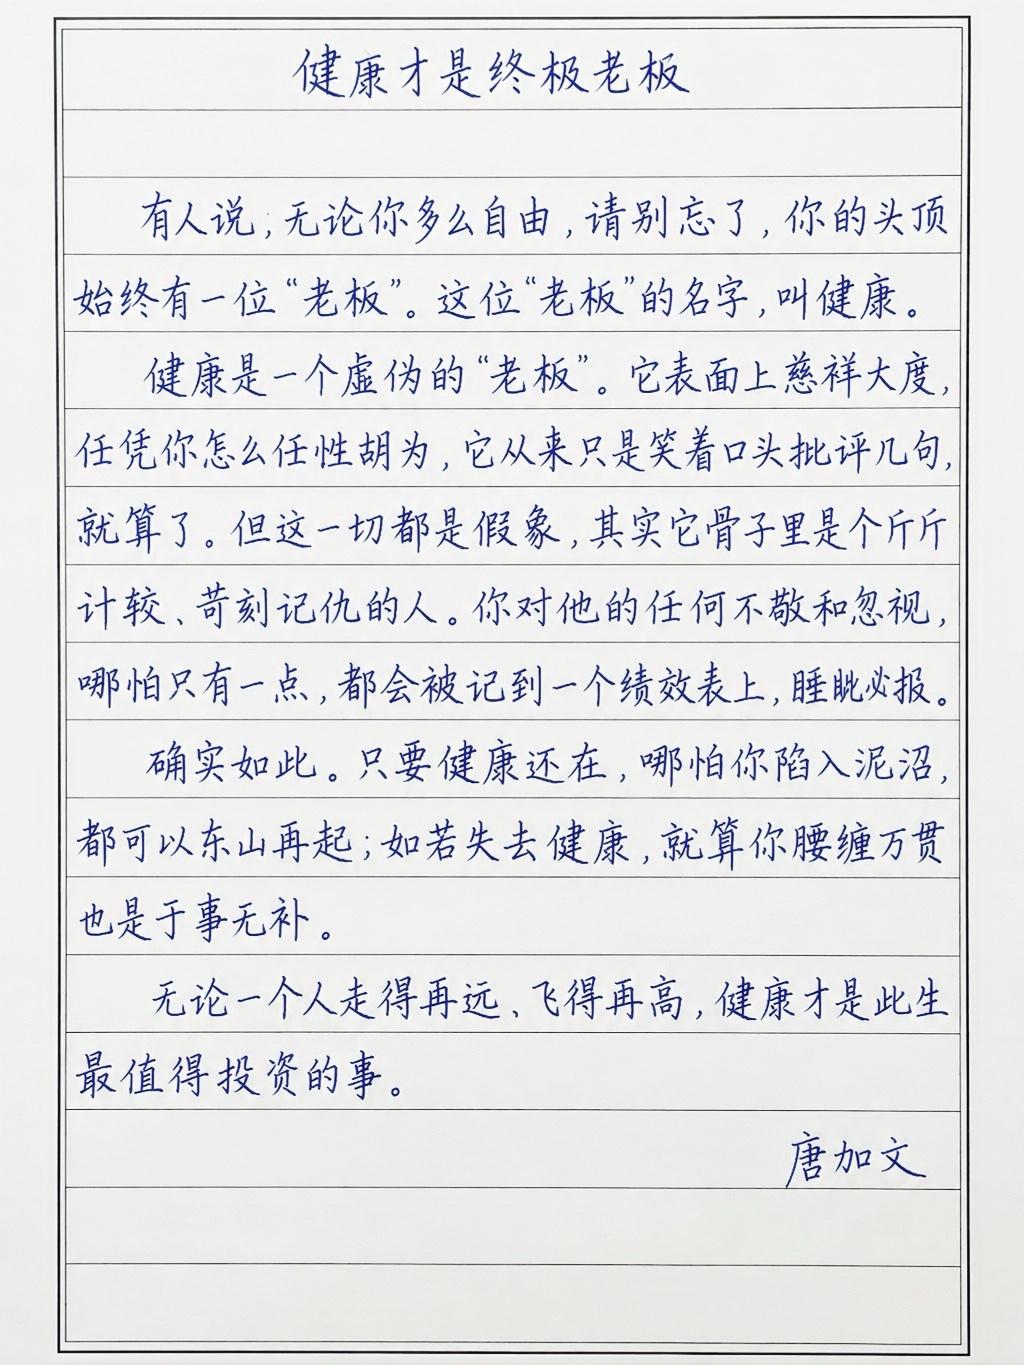 健康才是终极老板
有人说；无论你多么自由，请别忘了，你的头顶
始终有一位“老板”。这位“老板”的名字，叫健康。
健康是一个虚伪的“老板”。它表面上慈祥大度，
任凭你怎么任性胡为，它从来只是笑着口头批评几句，
就算了。但这一切都是假象，其实它骨子里是个斤斤
计较、苛刻记仇的人。你对他的任何不敬和忽视，
哪怕只有一点，都会被记到一个绩效表上，睡眦必报。
确实如此。只要健康还在，哪怕你陷入泥沼，
都可以东山再起；如若失去健康，就算你腰缠万贯
也是于事无补。
无论一个人走得再远、飞得再高，健康才是此生
最值得投资的事。
唐加文